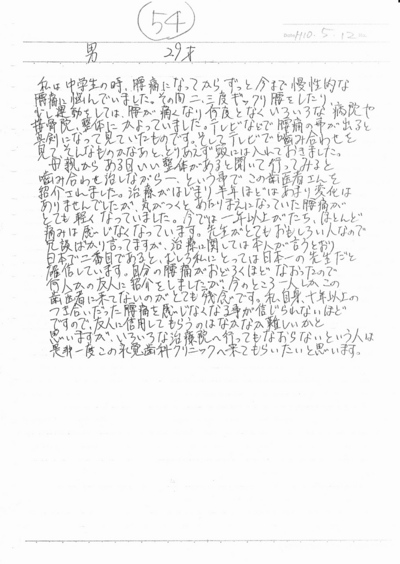 54
H10. 5. 12
男 29才
私は中学生の時、腰痛になってからずっと今まで慢性的な
腰痛に悩んでいました。その間二、三度ギックリ腰をしたり、
少し運動をしては、腰が痛くなり何度となくいろいろな病院や
接骨院、整体にかよっていました。テレビなどで腰痛の事が出ると
真剣になって見ていたものです。そしてテレビで噛み合わせを
見て、そんなものかなあと、とりあえず頭には入れておきました。
母親からある日いい整体があると聞いて行ってみると
噛み合わせ治しながら―、という事でこの歯医者さんを
紹介されました。治療がはじまり半年ほどはあまり変化は
ありませんでしたが、気がつくとあたりまえになっていた腰痛が
とても軽くなっていました。今では一年以上がたち、ほとんど
痛みは感じなくなっています。先生がとてもおもしろい人なので
冗談ばかり言ってますが、治療に関しては本人が言うとおり
日本で二番目であると、むしろ私にとっては日本一の先生だと
確信しています。自分の腰痛がおどろくほどなおったので
何人かの友人に紹介をしましたが、今のところ一人しかこの
歯医者に来てないのがとても残念です。私自身、十年以上の
つき合いだった腰痛を感じなくなる事が信じられないほど
ですので、友人に信用してもらうのはなかなか難しいかと
思いますが、いろいろな治療院へ行ってもなおらないという人は
是非一度この 歯科クリニックへ来てもらいたいと思います。